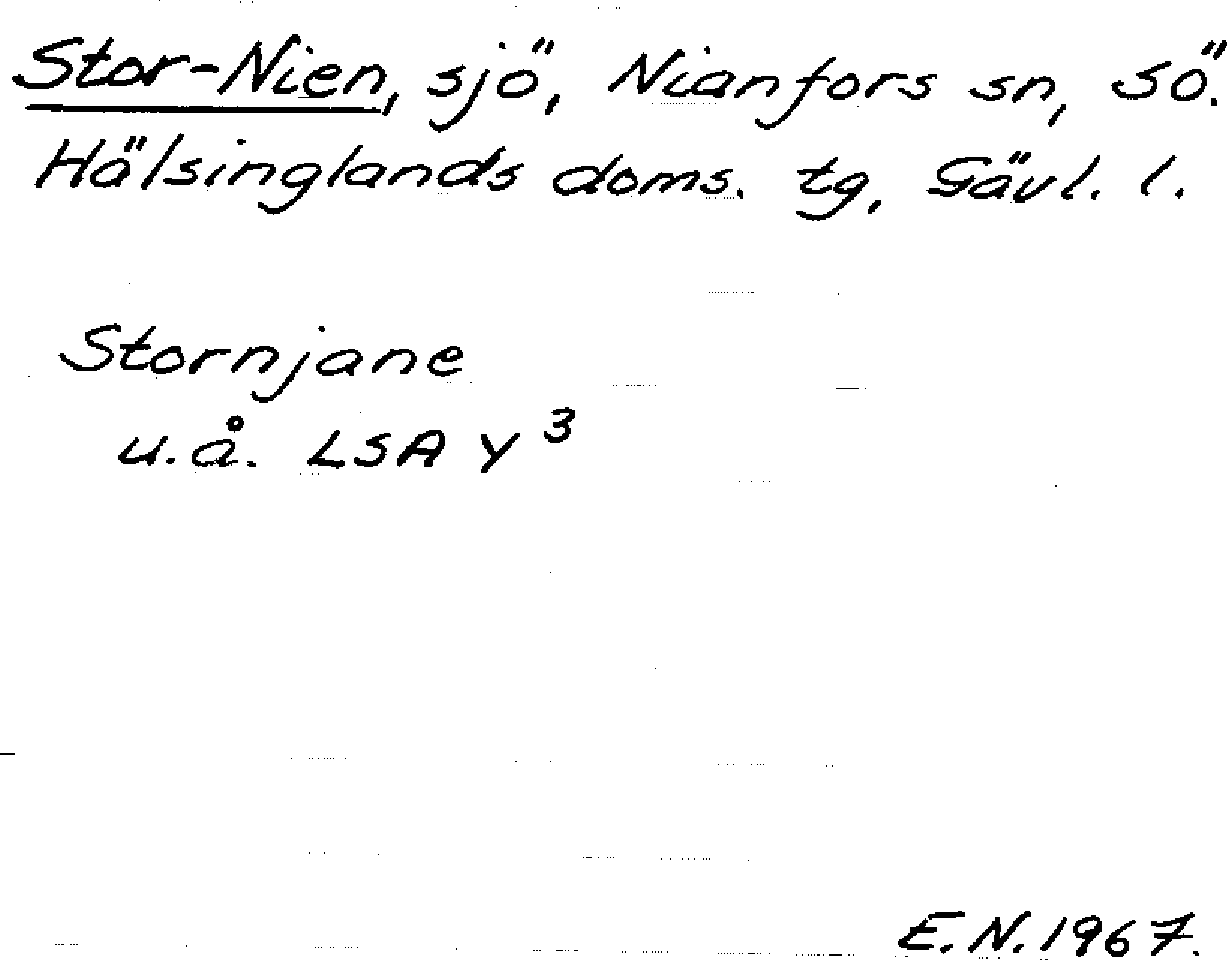 Stor-Nien, sjö, Nianfors sn, sö.
Hälsinglands doms. tg, Gävl. l.
Stornjane
u.å. LSA Y 3
E.N. 1967.